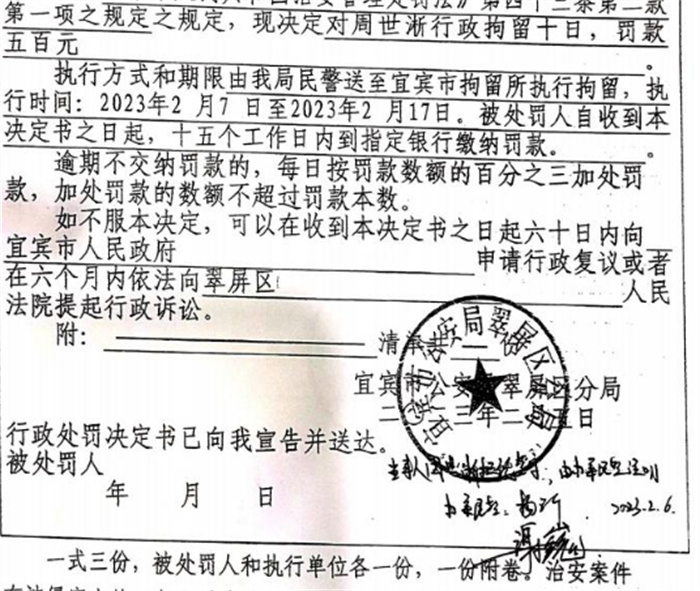 治安管理处罚法》第四十三条第二款
第一项之规定之规定，现决定对周世淅行政拘留十日，罚款
五百元。
执行方式和期限由我局民警送至宜宾市拘留所执行拘留，执
行时间：2023年2 月7 日至2023年2 月17日。被处罚人自收到本
决定书之日起，十五个工作日内到指定银行缴纳罚款。。
逾期不交纳罚款的，每日按罚款数额的百分之三加处罚
款，加处罚款的数额不超过罚款本数。
如不服本决定，可以在收到本决定书之日起六十日内向
宜宾市人民政府 申请行政复议或者
在六个月内依法向翠屏区 人民
法院提起行政诉讼。
附： 清单
宜宾市公安局翠屏区分局
二〇二三年二月 五日
行政处罚决定书已向我宣告并送达。
被处罚人
年 月 日
办案民警：
2023.2.6.
一式三份，被处罚人和执行单位各一份，一份附卷。治安案件